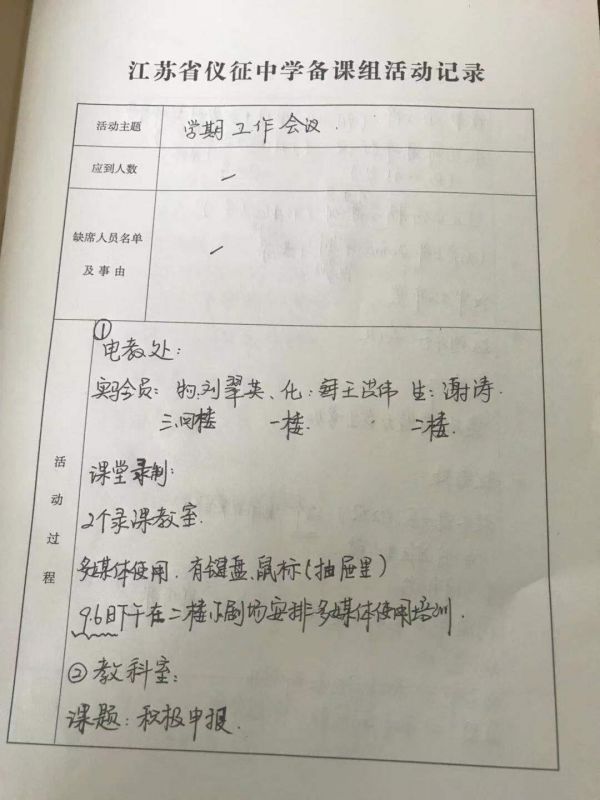 江苏省仪征中学备课组活动记录
活动主题 学期工作会议.
应到人数
缺席人员名单
及事由
活动过程
①
电教处:
实验员: 物:刘翠英、化: 王洪伟 生:谢涛.
三、四楼 一楼. 二楼.
课堂录制:
2个录课教室.
多媒体使用.有键盘、鼠标(抽屉里)
9.6日下午在二楼小剧场安排多媒体使用培训.
②教科室:
课题:积极申报.